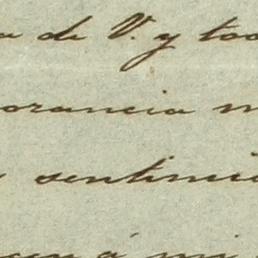 a de V. y too
orancia m
sentimie
á mi